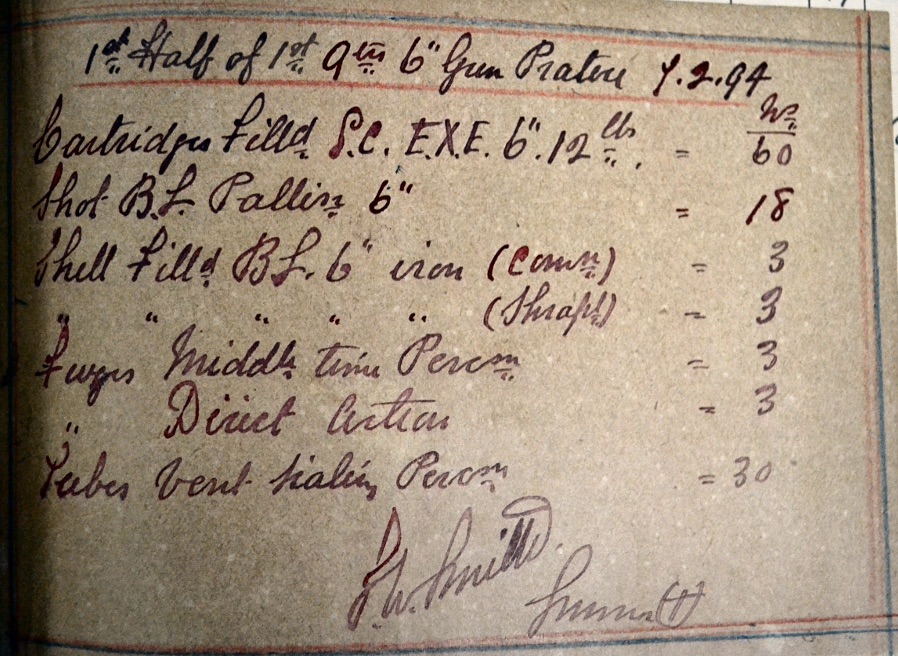 1st Half of 1st Qtr 6" Gun Pratice 7.2.94
Nos
Cartridges Filld S.C. E.X.E. 6". 12 lbs. = 60
Shot B.L. Pallisr 6" = 18
Shell Filld BL. 6" iron (Comn) = 3
" " " " " (Shrapl) = 3
Fuzes Middle time Percsn = 3
" Direct Action = 3
Tubes Vent Sealing Percsn = 30
Smith